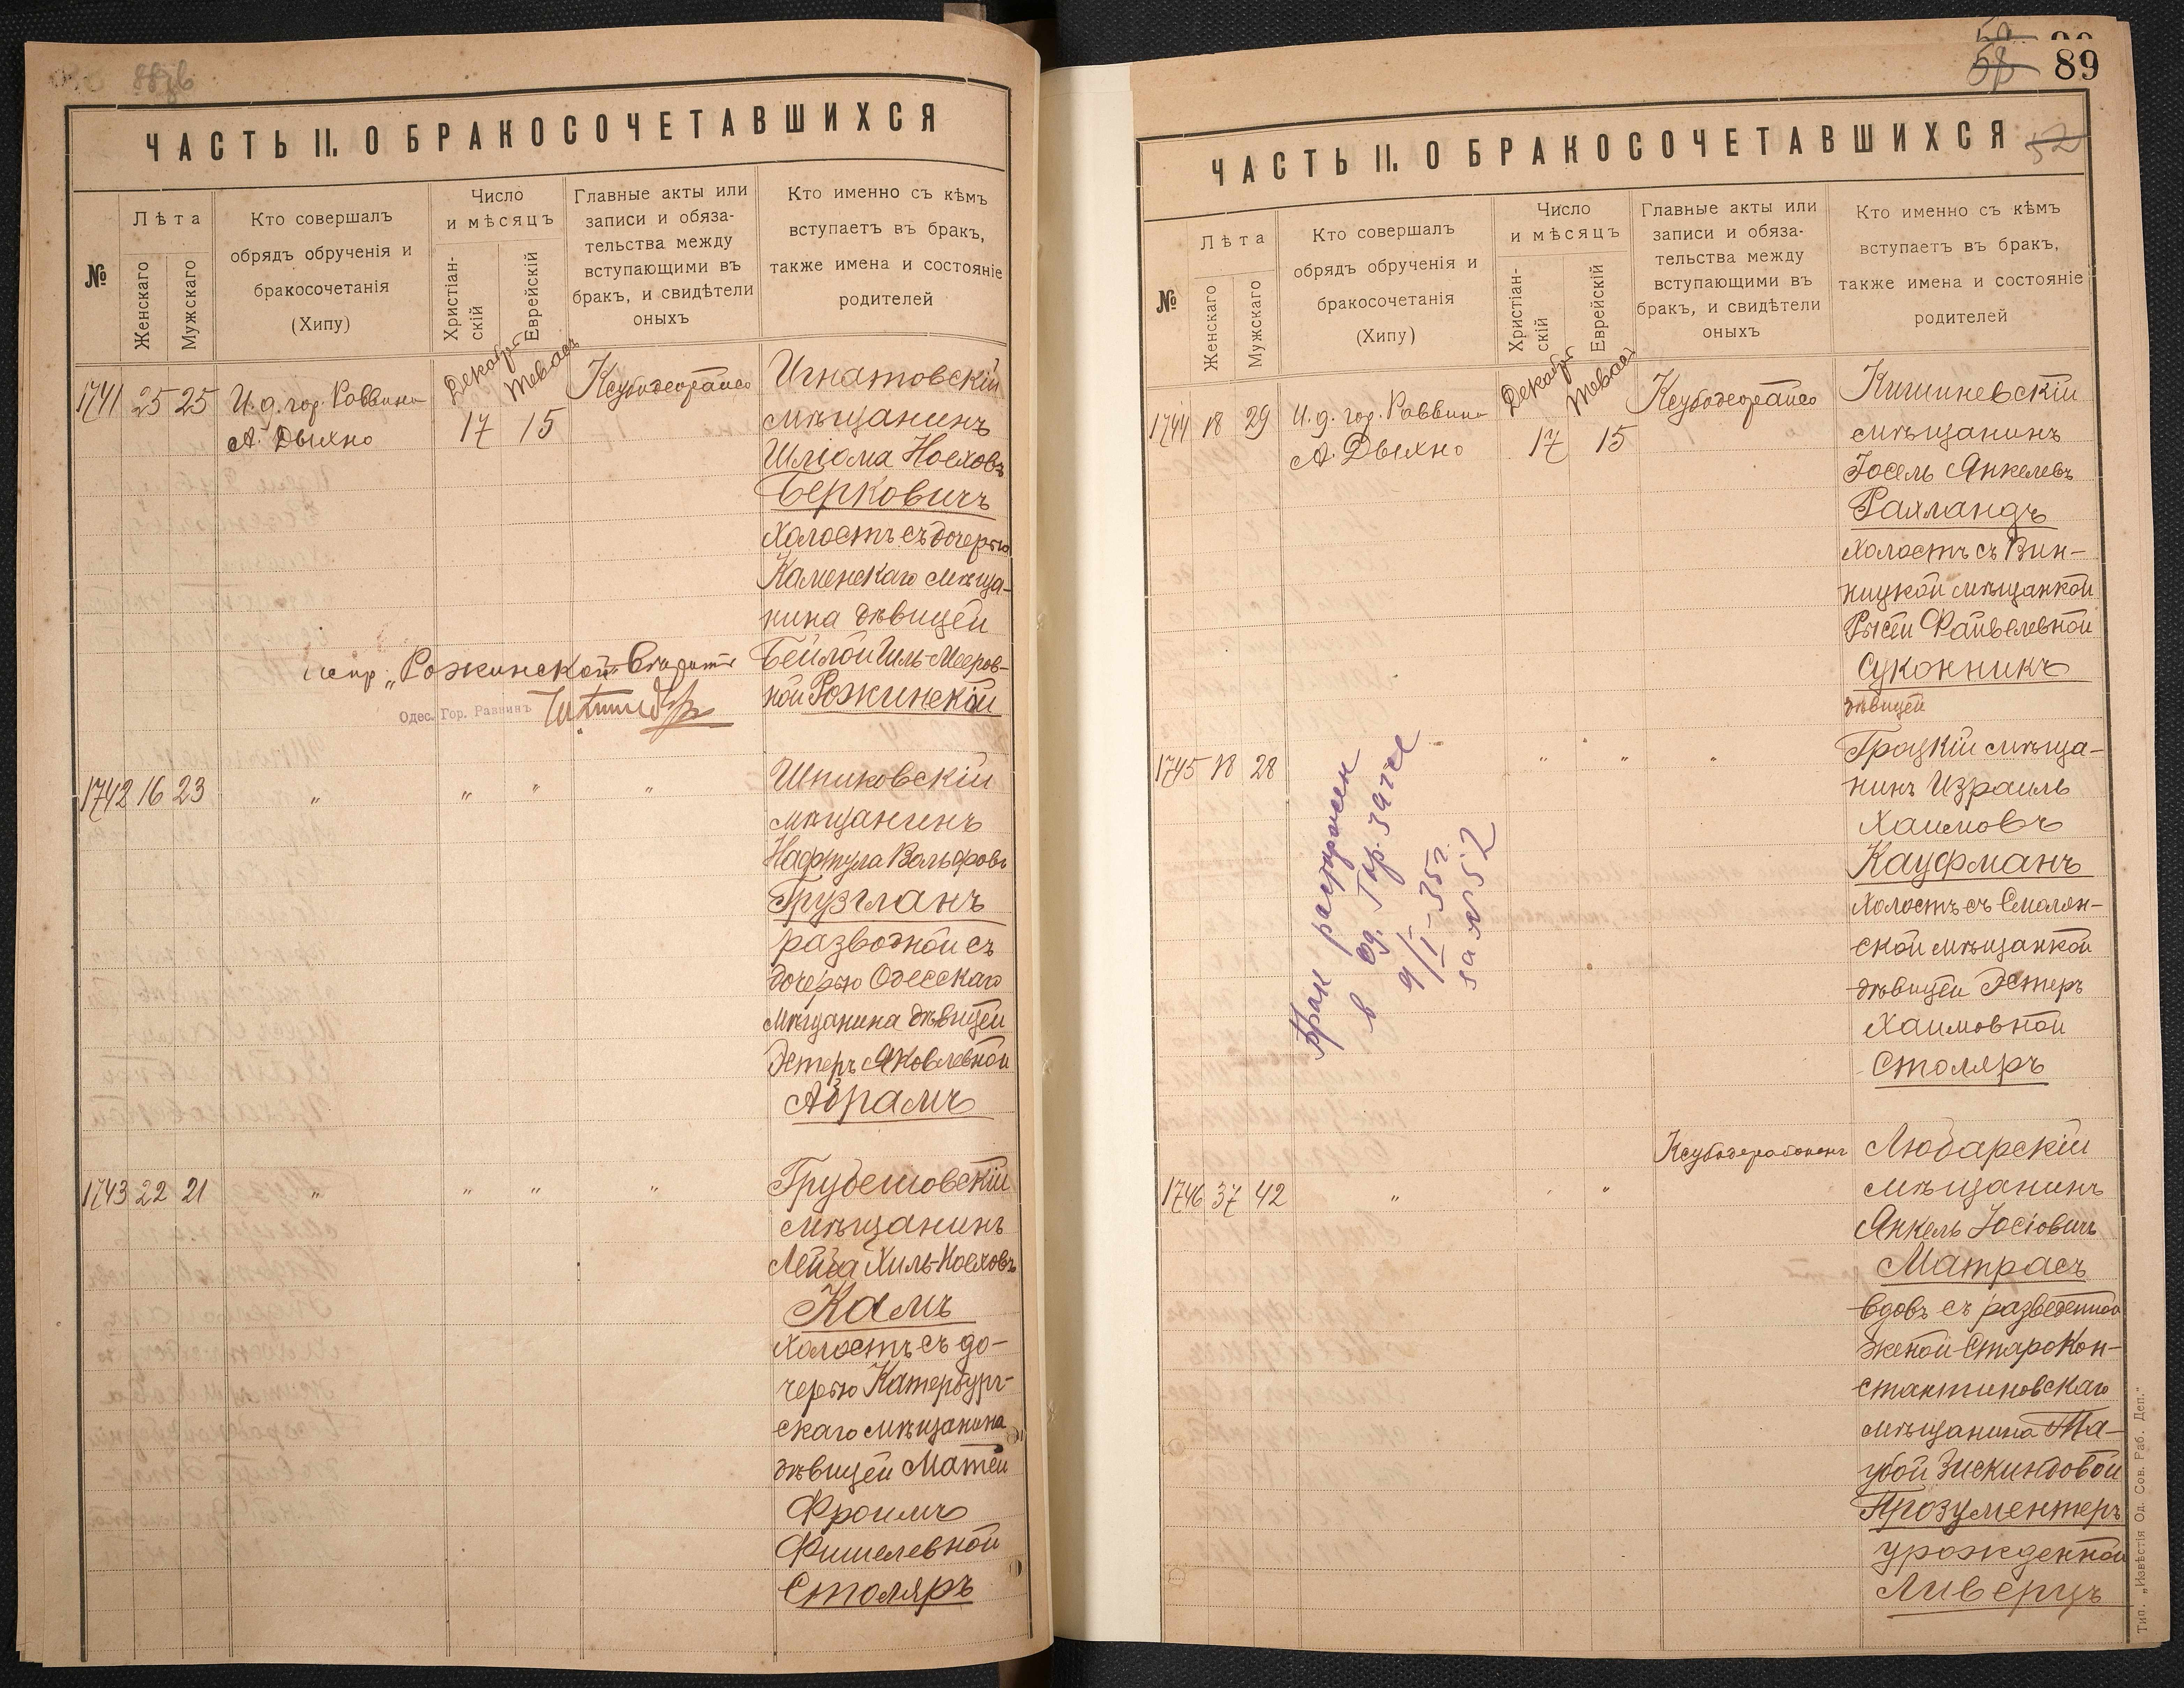 88 об
ЧАСТЬ II. О БРАКОСОЧЕТАВШИХСЯ
№
Лѣта
Женскаго
Мужскаго
Кто совершалъ
обрядъ обрученія и
бракосочетанія
(Хипу)
Число
и мѣсяцъ
Христіан-
скій
Еврейскій
Главные акты или
записи и обяза-
тельства между
вступающими въ
бракъ, и свидѣтели
оныхъ
Кто именно съ кѣмъ
вступаетъ въ бракъ,
также имена и состояніе
родителей
1741 25 25
И. д. гор. Раввина
А. Дыхно
Декабря
17
Тевасъ
15
Ксубодеорайсо
Игнатовскій
мѣщанинъ
Шліома Ноеховъ
Берковичъ
холостъ съ дочерью
Каменскаго мѣща-
нина дѣвицей
Бейлой Гиль-Мееров-
ной Рожинской
испр. „Рожинской"
Одес. Гор. Раввинъ
1742 16 23
" " " "
Шпиковскій
мѣщанинъ
Нафтула Вольфовъ
Грузгланъ
разводной съ
дочерью Одесскаго
мѣщанина дѣвицей
Эстеръ Яковлевной
Абрамъ
1743 22 21
" " " "
Грубешовскій
мѣщанинъ
Лейба Хиль-Ноеховъ
Камъ
холостъ съ до-
черью Катербург-
скаго мѣщанина
дѣвицей Матей
Фроимъ
Фишелевной
Столяръ
58
89
ЧАСТЬ II. О БРАКОСОЧЕТАВШИХСЯ
52
№
Лѣта
Женскаго
Мужскаго
Кто совершалъ
обрядъ обрученія и
бракосочетанія
(Хипу)
Число
и мѣсяцъ
Христіан-
скій
Еврейскій
Главные акты или
записи и обяза-
тельства между
вступающими въ
бракъ, и свидѣтели
оныхъ
Кто именно съ кѣмъ
вступаетъ въ бракъ,
также имена и состояніе
родителей
1744 18 29
И. д. гор. Раввина
А. Дыхно
Декабря
17
Тевасъ
15
Ксубодеорайсо
Кишиневскій
мѣщанинъ
Іосель Янкелевъ
Рахландъ
холостъ съ Вин-
ницкой мѣщанкой
Рысей Файвелевной
Суконникъ
дѣвицей
1745 18 28
" " "
брак расторжен
в Од. Гор. Загсе
9/I-35г.
за № 52
Гроцкій мѣща-
нинъ Израиль
Хаимовъ
Кауфманъ
холостъ съ Смолен-
ской мѣщанкой
дѣвицей Эстеръ
Хаимовной
Столяръ
1746 37 42
" " "
Ксубодерабонен
Любарскій
мѣщанинъ
Янкель Іосіовичъ
Матрасъ
вдовъ съ разведенной
женой Старокон-
стантиновскаго
мѣщанина Та-
убой Зискиндовой
Прозументеръ
урожденной
Ливерцъ
Тип. „Извѣстія Од. Сов. Раб. Деп."